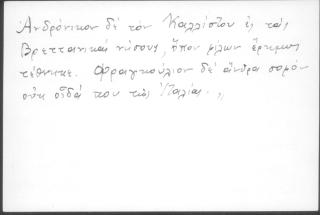 Ἀνδρόνικον δὲ τὸν Καλλίστου ἐς τὰς
Βρεττανικὰς νήσους, ὅπου φίλων ἔρημος
τέθνηκε. Φραγκούλιον δὲ ἄνδρα σοφόν
οὐκ οἶδά που τῆς Ἰταλίας.,,